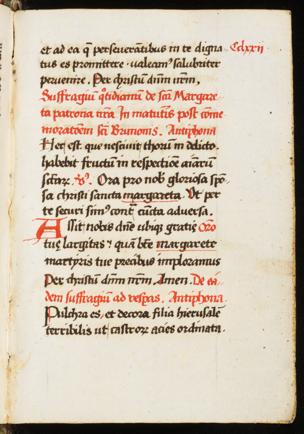 et ad ea q̄ perseverantibus in te digna Cclxxii
tus es promittere valeam⁹ salubriter
pervenire. Per christū dn̄m nr̄m.
Suffragiū q̄tidianū de scā Margare
ta patrona nr̄a. In matutīs post cōme
moratōem scī Brunonis. Antiphona
Hec est que nescivit thorum in delicto
habebit fructū in respectiōe aīarum
sctārꝫ. ℣. Ora pro nob̄ gloriosa spō
sa christi sancta margareta. Ut per
te securi sim⁹ cont̄ cūcta adversa.
Assit nobis dn̄e ubiqꝫ gratiē Oro
tue largitas & quā bt̄e margarete
martyris tue precibus imploramus
Per christū dn̄m nr̄m. Amen. De ea
dem suffragiū ad vesp̄as. Antiphona
Pulchra es, et decora filia hierusalē
terribilis ut castrorꝫ acies ordinata.